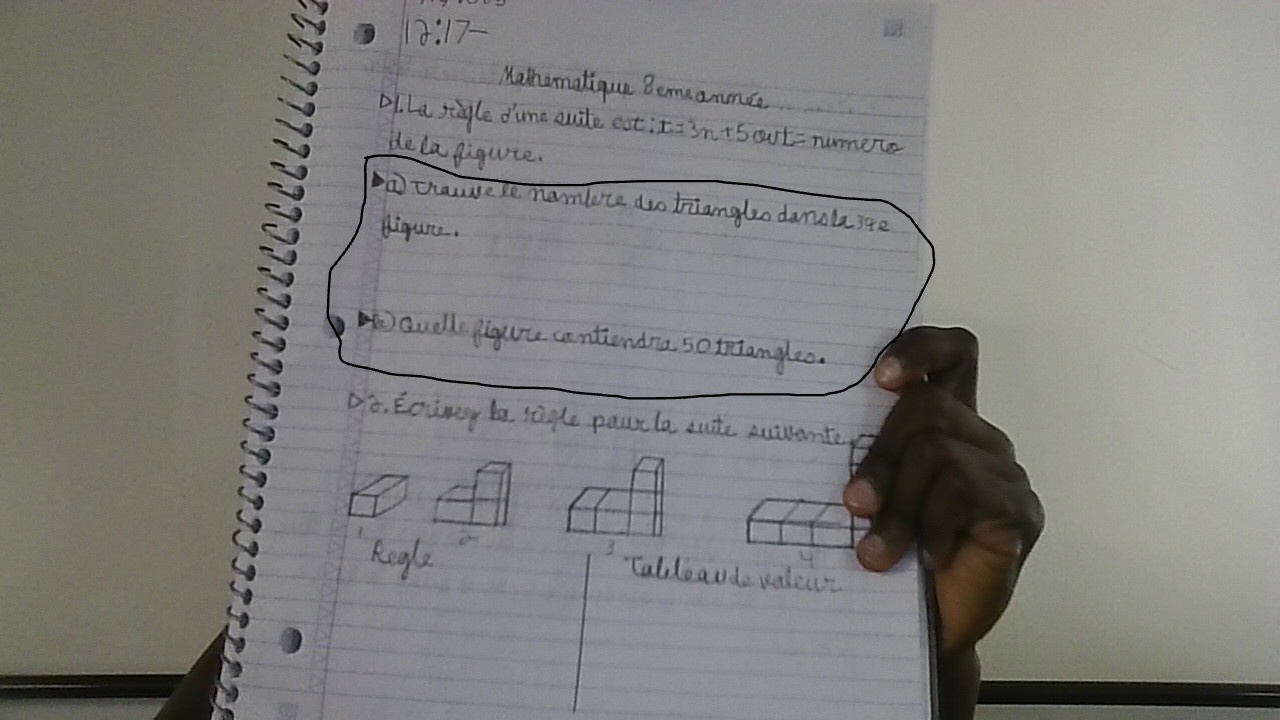 12:17-
Mathematique 8eme année
1. La règle d'une suite est: t=3n+5 out= numero
de la figure.
a) trauve le nombre des triangles dans la 34e
figure.
b) Quelle figure contiendra 50 triangles.
2. Écrivez la règle pour la suite suivante
1 2 3 4
Regle Tableau de valeur